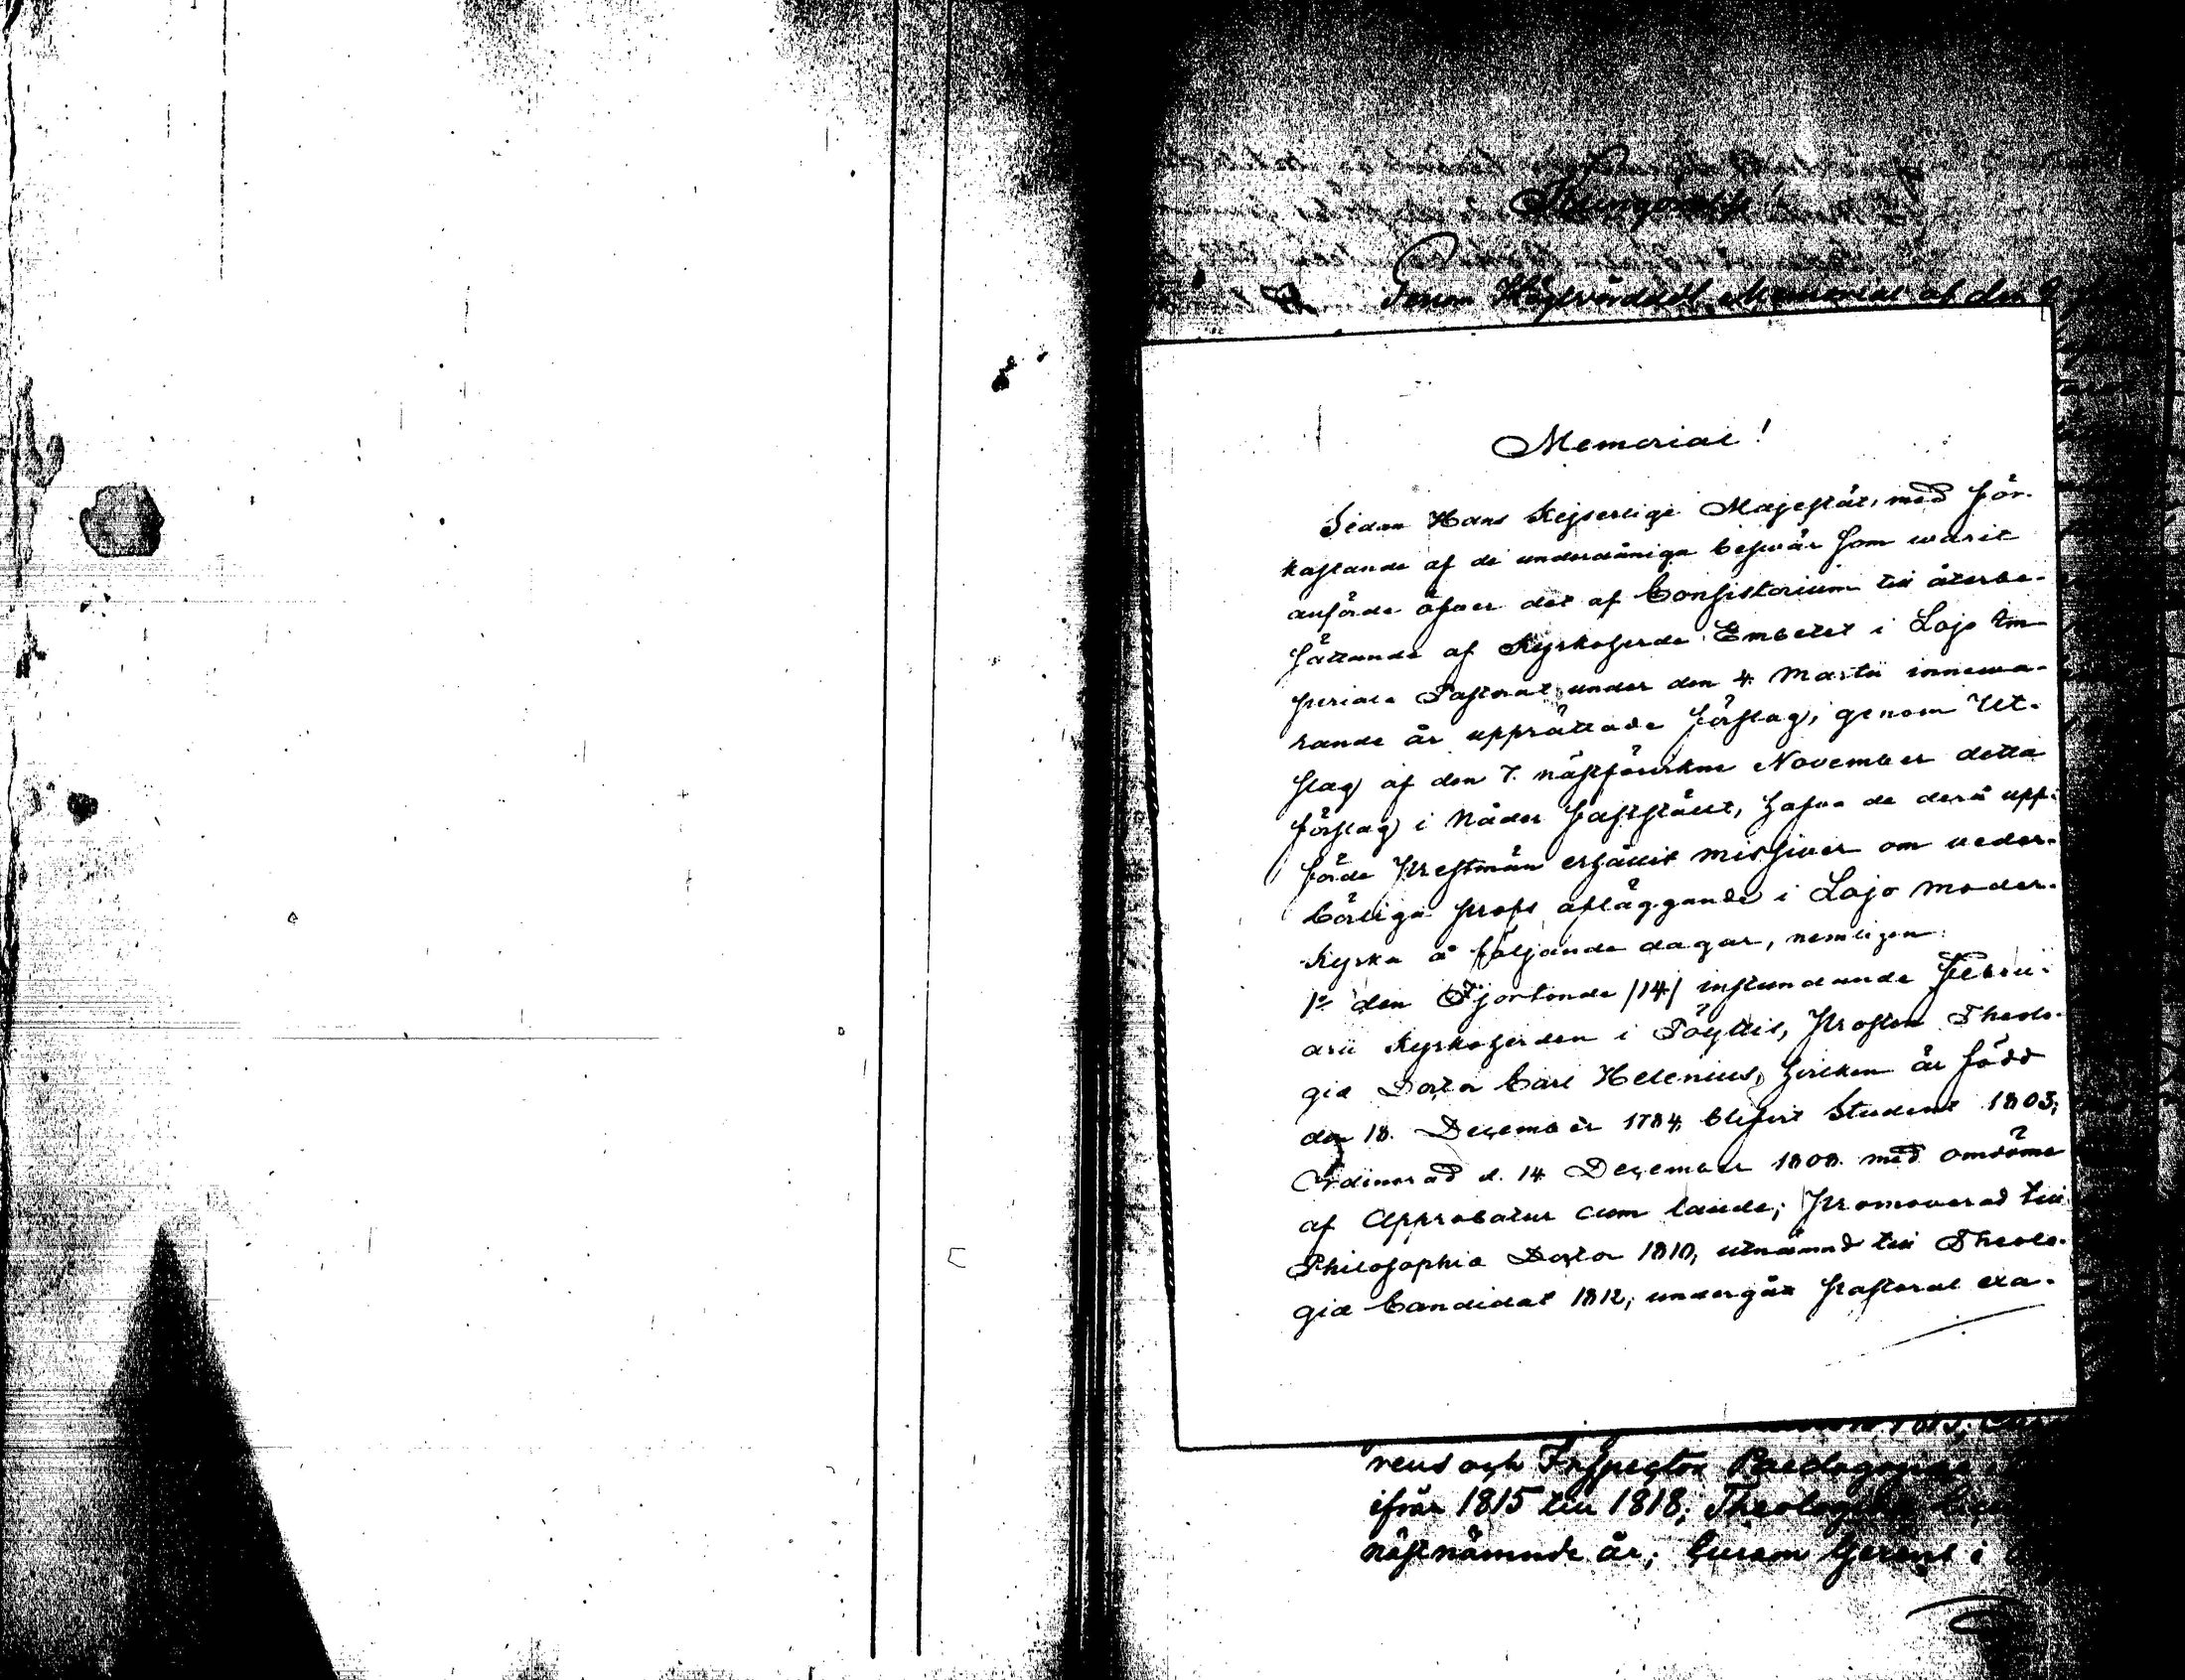 Kungörelse!
Genom Högvördd. Memorial af den
Memorial!
Sedan Hans Kejserlige Majestät, med för-
kastande af de underdåniga besvär som warit
anförde öfver det af Consistorium till återbe-
sättande af Kyrkoherde Embetet i Lojo Im-
periale Pastorat under den 4 Martii innewa-
rande år upprättade förslag, genom Ut-
slag af den 7. nästförvikne November detta
förslag i Nåder fastställt, hafva de derå upp-
förde Prestmän erhållit missiver om veder-
börliga profs afläggande i Lojo moder-
kyrka å följande dagar, nemligen:
1o den Fjortonde /14/ instundande Febru-
arii Kyrkoherden i Pöyttis, Prosten Theolo-
giæ Doctor Carl Helenius, hvilken är född
den 18. December 1784, blifvit Student 1803;
Ordinerad d. 14 December 1808 med omdöme
af Approbatur cum laude; Promoverad till
Philosophiæ Doctor 1810, utnämnd till Theolo-
giæ Candidat 1812; undergått pastoral exa-
rens och Inspector Paedagogiae
ifrån 1815 till 1818; Theologiæ
nästnämnde år; Curam Gerens i